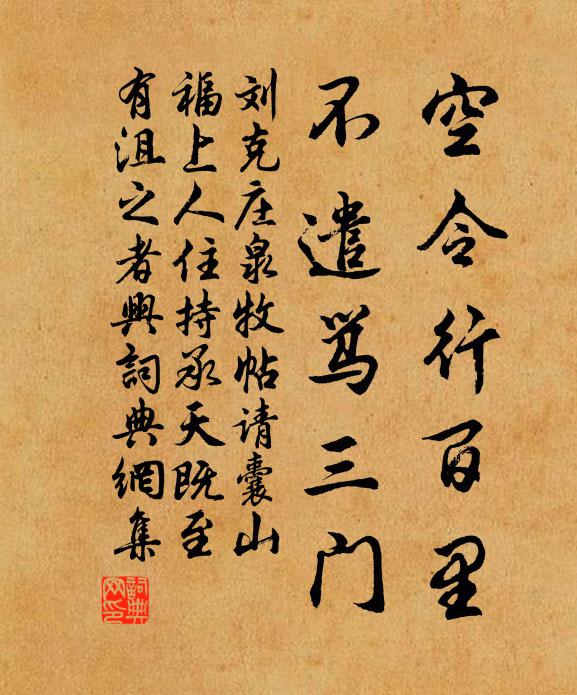 空令行百里
不遣骂三门
刘克庄泉牧帖请囊山
福上人住持承天既至
有沮之者興詞典網集
詞典网印